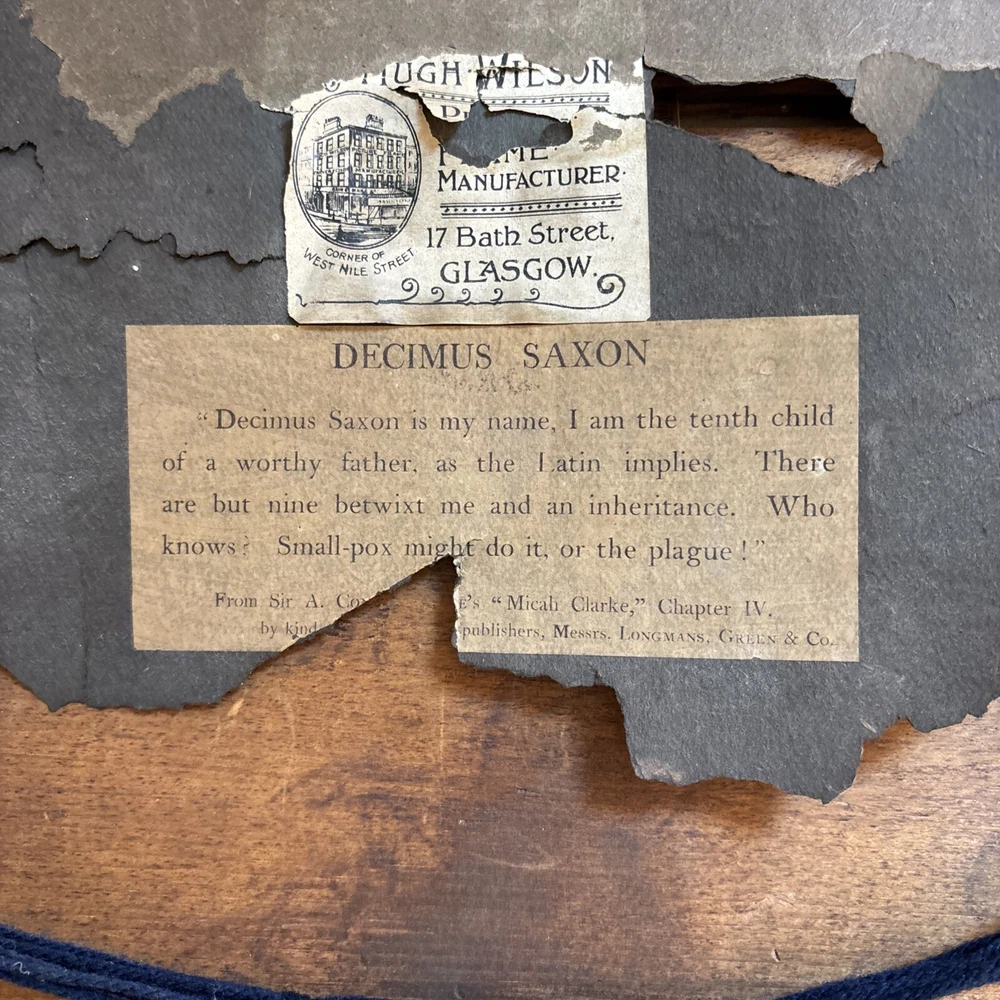 HUGH WILSON
MANUFACTURER.
17 Bath Street,
GLASGOW.
CORNER OF
WEST NILE STREET
DECIMUS SAXON
“Decimus Saxon is my name, I am the tenth child
of a worthy father, as the Latin implies. There
are but nine betwixt me and an inheritance. Who
knows? Small-pox might do it, or the plague!”
From Sir A. “Micah Clarke,” Chapter IV.
by publishers, Messrs. LONGMANS, GREEN & Co.